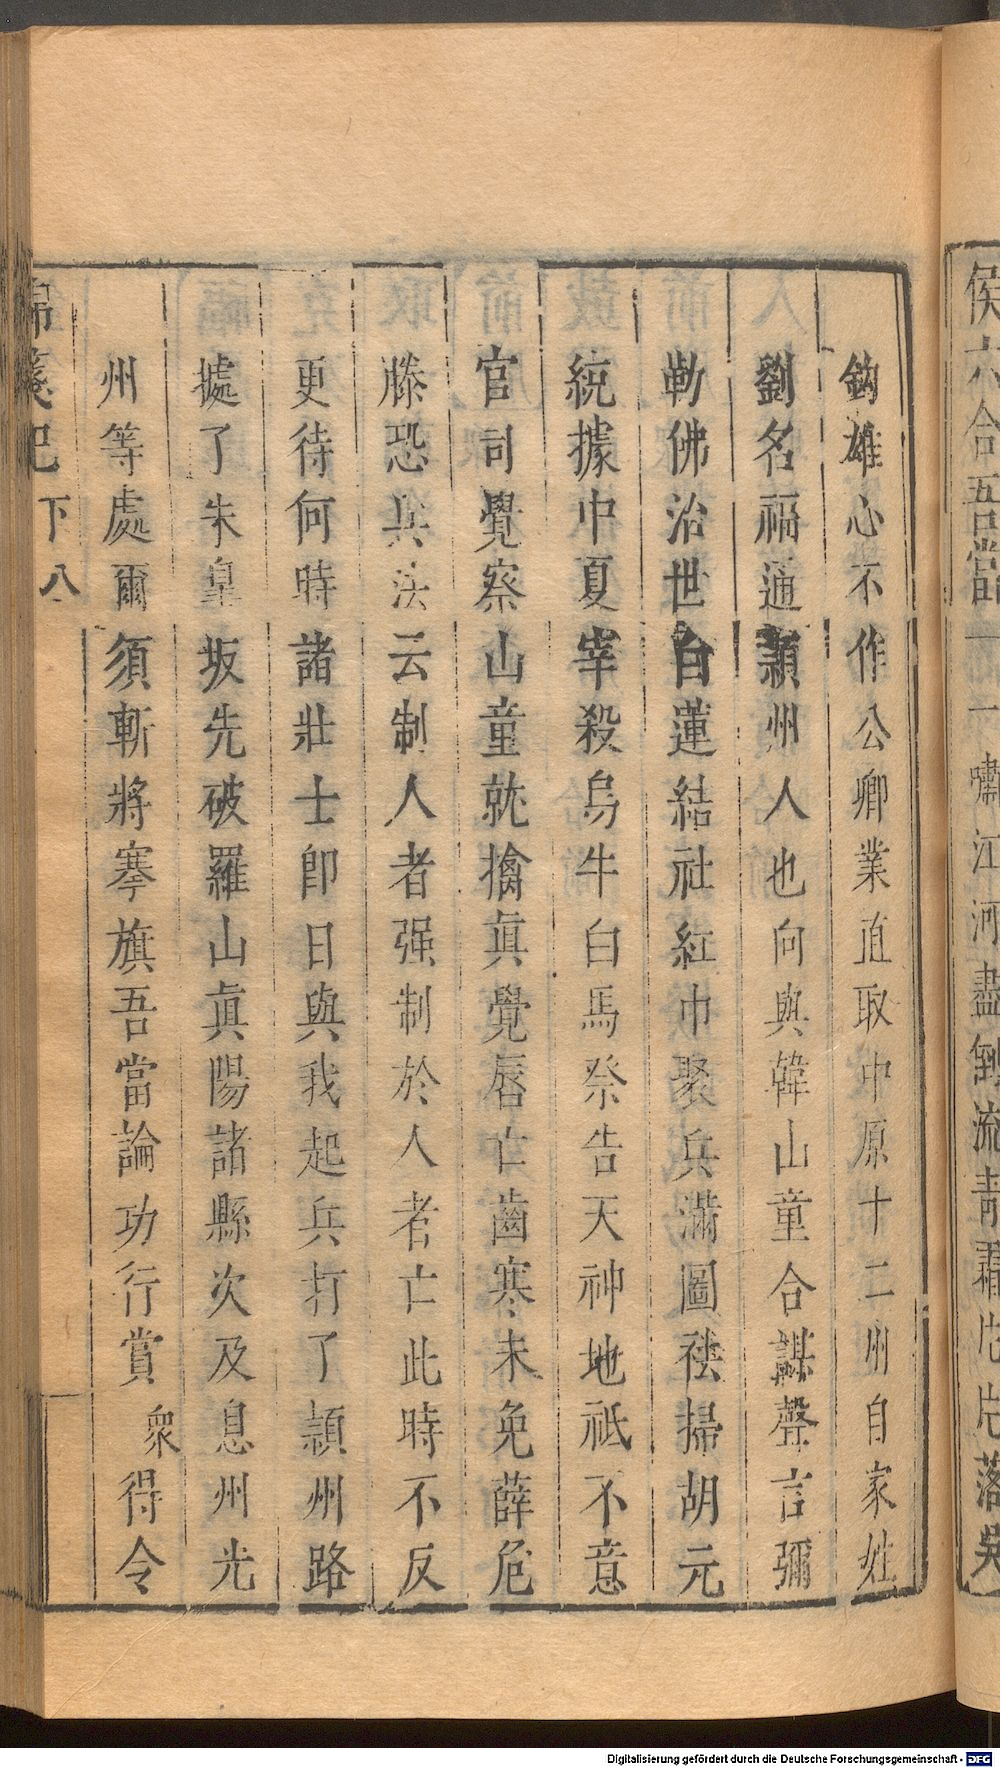 侯六合吾當一一嘯江河盡倒流青霜片片落吳
鈎雄心不作公卿業直取中原十二州自家姓
劉名福通潁州人也向與韓山童合謀聲言彌
勒佛治世白蓮結社紅巾聚兵滿圖袪掃胡元
統據中夏宰殺烏牛白馬祭告天神地祇不意
官司覺察山童就擒眞覺唇亡齒寒未免薛危
滕恐兵法云制人者强制於人者亡此時不反
更待何時諸壯士卽日與我起兵打了潁州路
據了朱皐坂先破羅山眞陽諸縣次及息州光
州等處爾須斬將搴旗吾當論功行賞衆得令
錦箋記 下 八
Digitalisierung gefördert durch die Deutsche Forschungsgemeinschaft - DFG